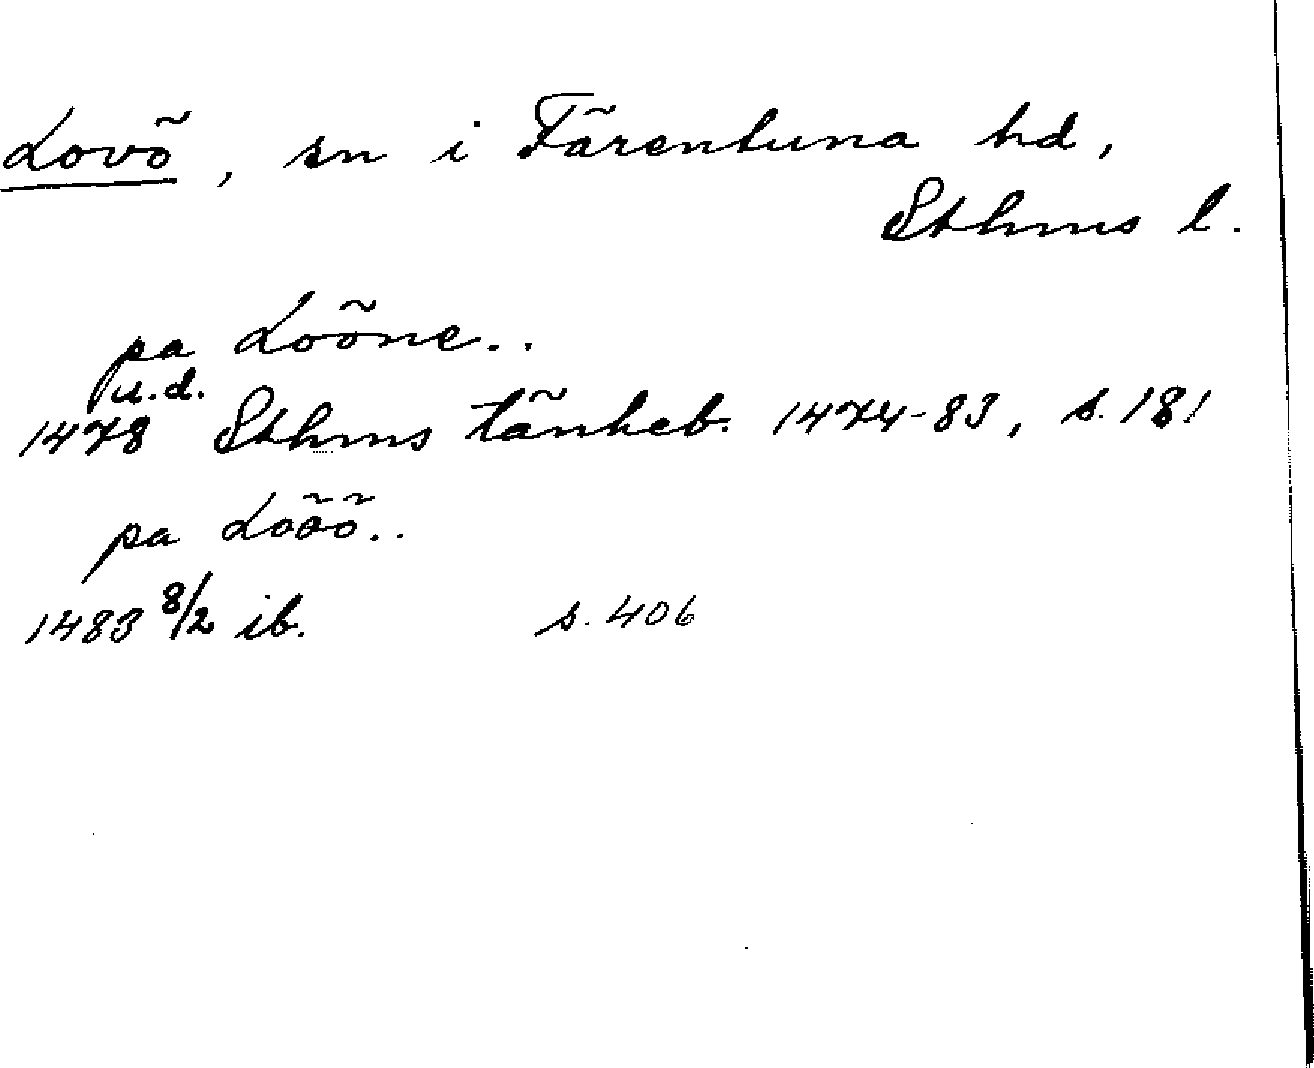 Lovö, sn i Färentuna hd,
Sthms l.
pa Looͤne..
u.d.
1478 Sthms tänkeb. 1474-83, s. 181
pa Loöö..
1483 8/2 ib. s. 406